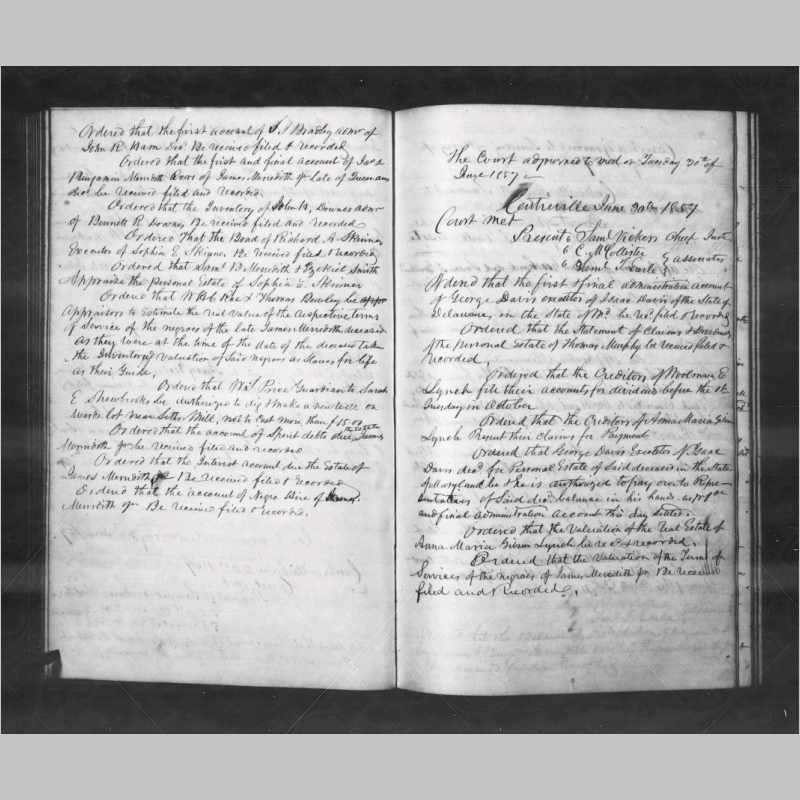 Ordered that the first account of S. T. Bradley admr of
John R. Ham Decd. Be received filed & recorded
Ordered that the first and final account of Jas &
Benjamin Merrith Exors of James Meredith Jr Late of Queen anns
decd be received filed and recorded.
Ordered that the Inventory of John H. Downes admr
of Bennett R Downes Be received filed and recorded
Ordered That the Bond of Richard A. Skinner
Executor of Sophia E. Skinner Be received filed & recorded
Ordered that Saml B. Meredith & Ezekiel Smith
Appraise the Personal Estate of Sophia E. Skinner
Ordered that & Thomas be
Appraisors to Estimate the real Value of the respective terms
of Service of the negroes of the late James Meredith deceased
as they were at the time of the date of the deceased take
the Inventory Valuation of Said negroes as Slaves for life
as their Guide,
Ordered that Wm Price Guardian to Sarah
E be authorized to dig & make a new well on
works lot near Mill, not to Cost more than $15.00
Ordered that the account of Sperit debts due the estate James
Merridith Jr be received filed and recorded
Ordered that the Interest account due the Estate of
James Meridith Jr Be received filed & recorded
Ordered that the account of Negro Hire of James
Meredith Jr Be received filed & recorded.
The Court adjourned to meet on Tuesday 30th of
June 1857
Centreville June 30th 1857
Court met
Present Saml Vickers Cheif Just
C McCollister
Saml T. Earle } associates
Ordered that the first & final administration account
of George Davis executor of Isaac Davis of the State of
Delaware, in the State of Md. be recd. filed & recorded
Ordered that the Statement of Claims &
of the Personal Estate of Thomas Murphy be received filed &
recorded,
Ordered that the Creditors of Woolman E.
Lynch file their accounts for dividend before the 1st
Tuesday in October
Ordered that the Creditors of Anna Maria Gibson
Lynch Present their claims for Payment
Ordered that George Davis Executor of Isaac
Davis decd. for Personal Estate of Said deceased in the State
of Maryland be & he is authorized to pay over to Repre-
sentatives of Said decd. balance in his hands as pr 1st
and final administration account this day settled.
Ordered that the Valuation of the real Estate of
Anna Maria Gibson Lynch be recd & recorded.
Ordered that the Valuation of the Term of
Services of the negroes of James Meredith Jr. Be received
filed and Recorded,